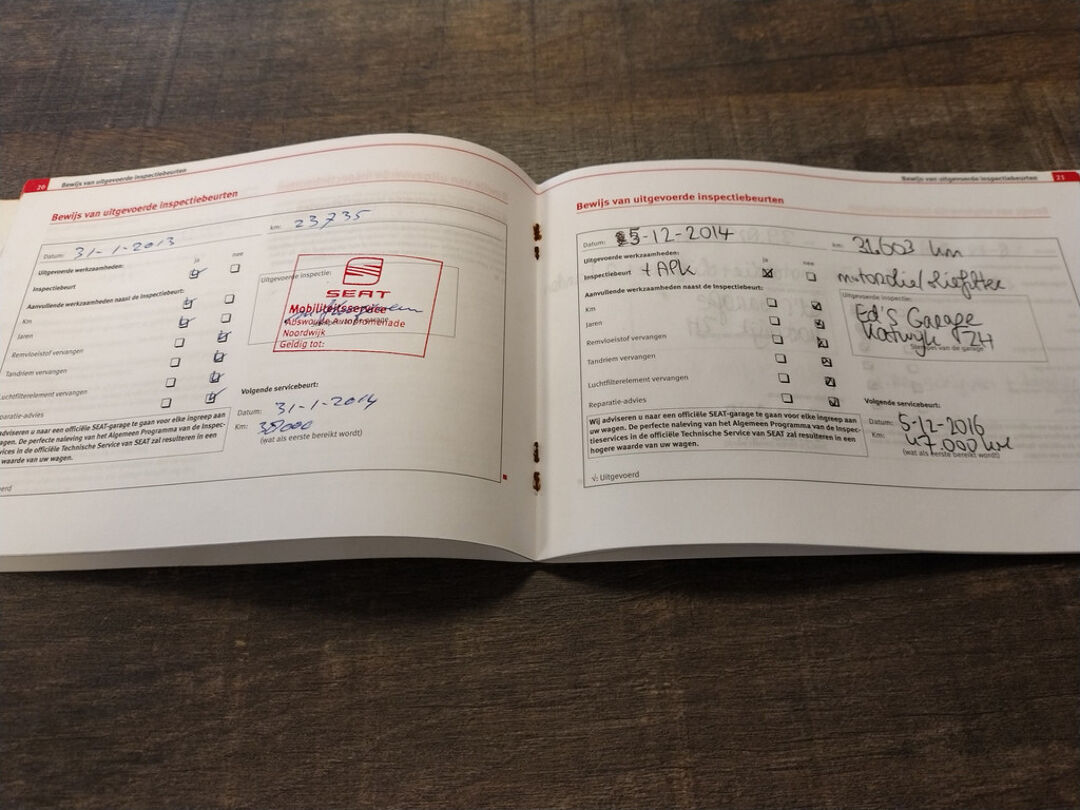 20 Bewijs van uitgevoerde inspectiebeurten
Bewijs van uitgevoerde inspectiebeurten
Datum: 31-1-2013
km: 23735
Uitgevoerde werkzaamheden:
ja nee
Inspectiebeurt
Aanvullende werkzaamheden naast de Inspectiebeurt:
Km
Jaren
Remvloeistof vervangen
Tandriem vervangen
Luchtfilterelement vervangen
paratie-advies
Uitgevoerde inspectie:
SEAT
Mobiliteitsservice
Abswoude Autopromenade
Noordwijk
Geldig tot:
Volgende servicebeurt:
Datum: 31-1-2014
Km: 38000
(wat als eerste bereikt wordt)
adviseren u naar een officiële SEAT-garage te gaan voor elke ingreep aan
agen. De perfecte naleving van het Algemeen Programma van de Inspec-
ervices in de officiële Technische Service van SEAT zal resulteren in een
waarde van uw wagen.
oerd
Bewijs van uitgevoerde inspectiebeurten 21
Bewijs van uitgevoerde inspectiebeurten
Datum: 5-12-2014
km: 31603 km
Uitgevoerde werkzaamheden:
ja nee
Inspectiebeurt + APK
motorolie/oliefilter
Aanvullende werkzaamheden naast de Inspectiebeurt:
Km
Jaren
Remvloeistof vervangen
Tandriem vervangen
Luchtfilterelement vervangen
Reparatie-advies
Uitgevoerde inspectie:
Ed's Garage
Katwijk ZH
Stempel van de garage
Volgende servicebeurt:
Datum: 5-12-2016
Km: 47.000 km
(wat als eerste bereikt wordt)
Wij adviseren u naar een officiële SEAT-garage te gaan voor elke ingreep aan
uw wagen. De perfecte naleving van het Algemeen Programma van de Inspec-
tieservices in de officiële Technische Service van SEAT zal resulteren in een
hogere waarde van uw wagen.
√: Uitgevoerd